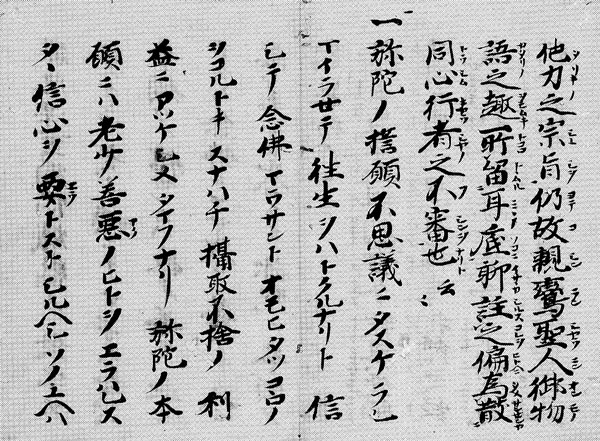 他力之宗旨仍故親鸞聖人御物
語之趣所留耳底聊註之偏為散
同心行者之不審也云〻
一 弥陀ノ誓願不思議ニタスケラレ
マイラセテ往生ヲハトクルナリト信
シテ念佛マウサントオモヒタツコヽロノ
ヲコルトキスナハチ攝取不捨ノ利
益ニアツケシメタマフナリ弥陀ノ本
願ニハ老少善悪ノヒトヲエラハレス
タヽ信心ヲ要トストシルヘシソノユヘハ